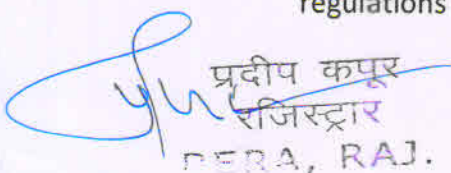 regulations
प्रदीप कपूर
रजिस्ट्रार
RERA, RAJ.